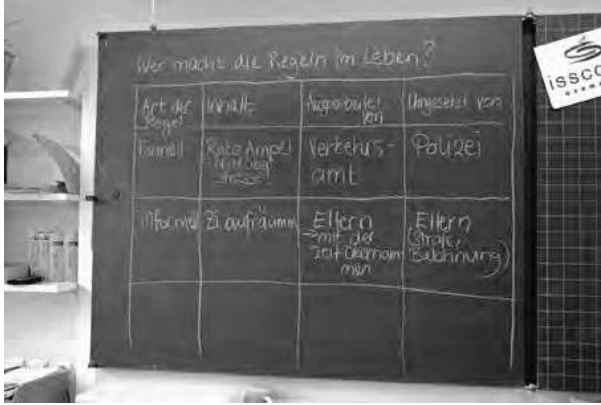 Wer macht die Regeln im Leben?
Art der
Regel
Inhalt
Ausgearbeitet
von
Umgesetzt von
Formell
Rote Ampel
Straße
Verkehrs-
amt
Polizei
informell
Zi aufräumen
Eltern
→ mit der
Zeit übernom
men
Eltern
(Strafe,
Belohnung)
issco